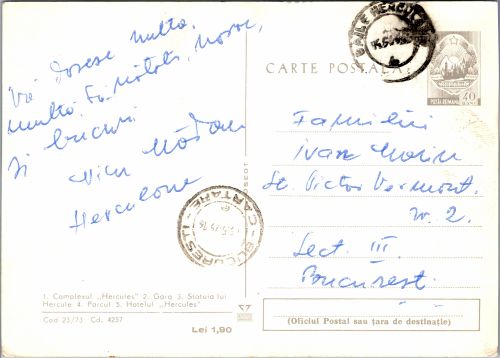 Vă doresc multă
multă sănătate, noroc,
și bucurii
Nicu
Herculane
1. Complexul „Hercules" 2. Gara 3. Statuia lui
Hercule 4. Parcul 5. Hotelul „Hercules"
Cod 23/73 Cd. 4257
Lei 1,90
BUCUREȘTI
CARTARE
BĂILE HERCULANE
CARTE POSTALĂ
POSTA ROMANA
40
Familiei
Ivan
St. Victor Vermont
nr. 2.
Sect. III.
București
(Oficiul Postal sau țara de destinație)